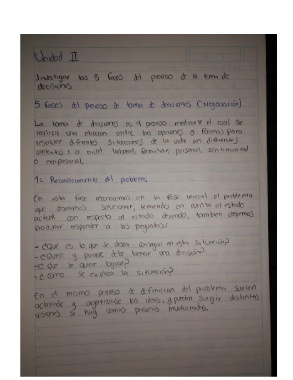 Unidad II
Investigar las 5 fases del proceso de la toma de
decisiones
5 fases del proceso de toma de decisiones (negociación)
La toma de decisiones es el proceso mediante el cual se
realiza una elección entre las opciones o formas para
resolver diferentes situaciones de la vida en diferentes
contextos: a nivel laboral, familiar, personal, sentimental
o empresarial.
1: Reconocimiento del problema.
En esta fase reconocemos en su fase inicial el problema
que deseamos solucionar, teniendo en cuenta el estado
actual con respecto al estado deseado, tambien debemos
procurar responder a las preguntas:
- ¿Qué es lo que se desea conseguir en esta situación?
- ¿Quien y porque debe tomar una decisión?
- ¿Que se quiere lograr?
- ¿Como se explica la situación?
En el mismo proceso de definicion del problema suelen
aclararse y organizarse las ideas, y pueden surgir distintas
si hay varias personas involucradas.